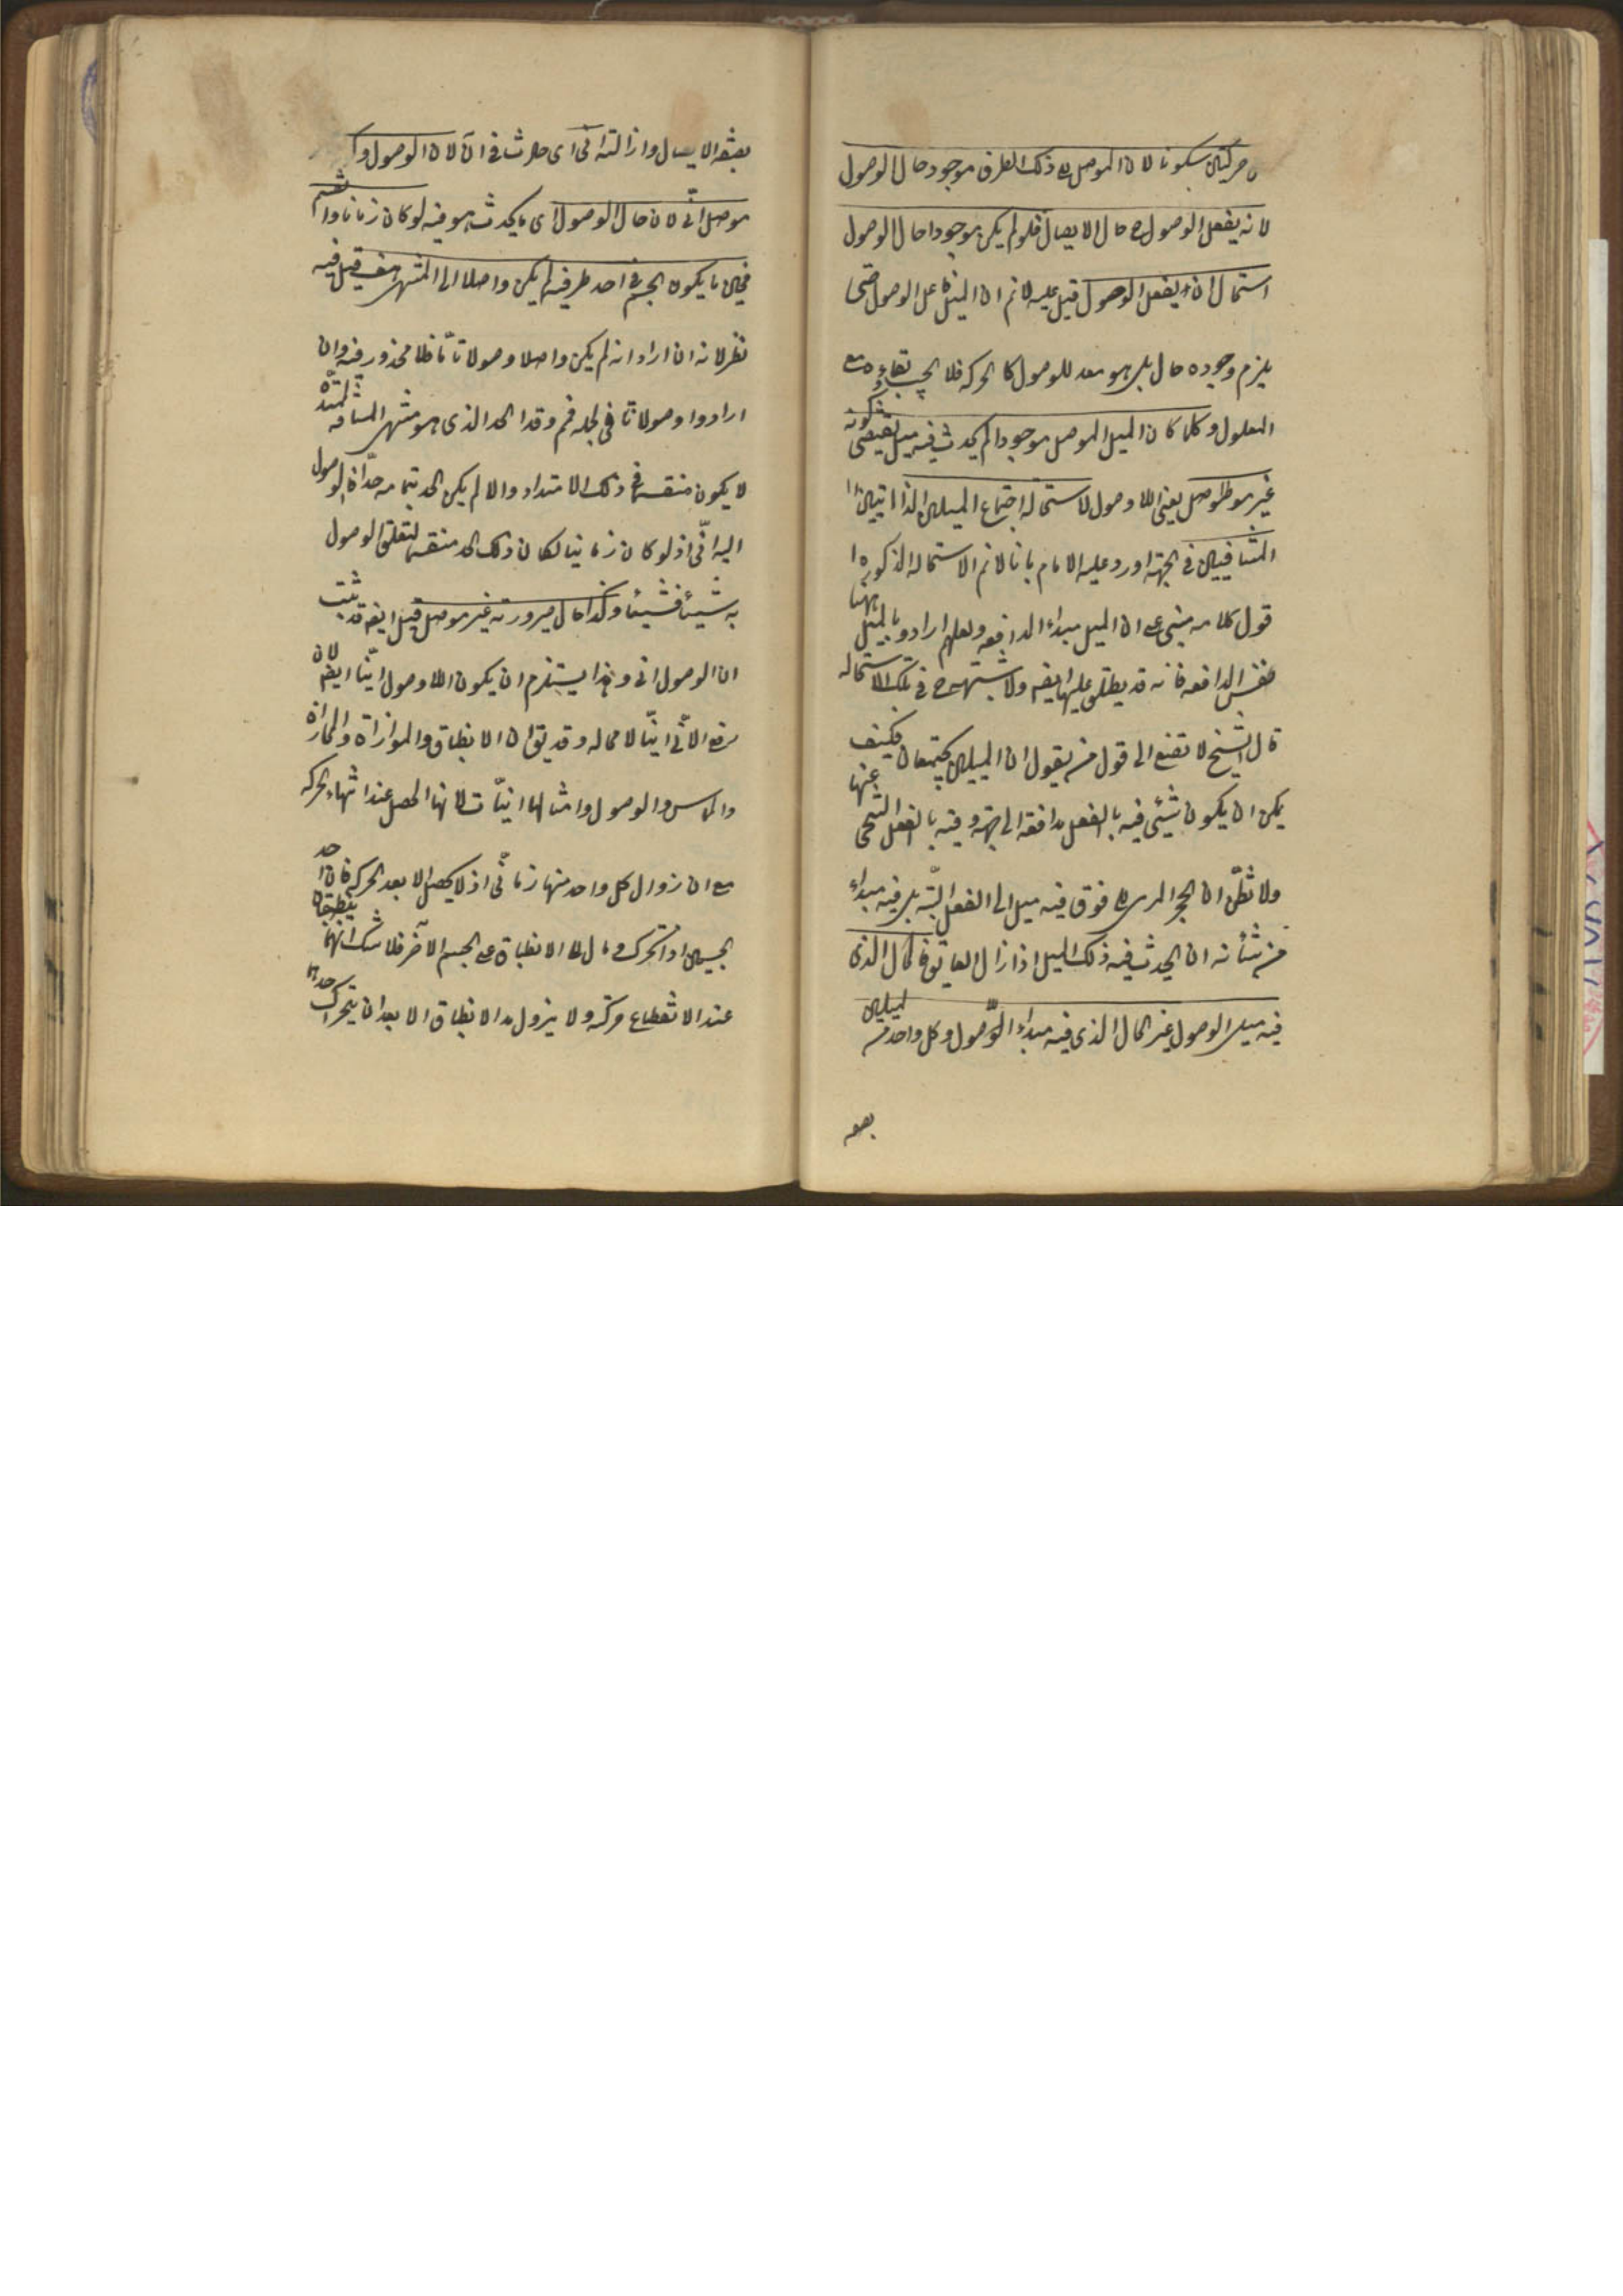 ن حركتين سكونا لان الموصل الى ذلك الطرف موجود حال الوصول
لانه يفعل الوصول حال الايصال فلو لم يكن موجودا حال الوصول
استحال ان يفعل الوصول قيل عليه لا نم ان الميل فاعل الوصول حتى
يلزم وجوده حال بل هو معد للوصول كالحركة فلا يجب بقاؤه مع
المعلول وكلما كان الميل الموصل موجودا لم يحدث فيه ميل يقتضى كونه
غير موصل يعنى اللا وصول لاستحالة اجتماع الميلين الذاتيين
المتنافيين فى الجهة اورد عليه الامام بانا لا نم الاستحالة المذكورة
قول كلامه مبنى على ان الميل مبداء المدافعه ولعلهم ارادوا بالميل ههنا
نفس المدافعه فانه قد يطلق عليها ايضه ولا شبهة فى تلك الاستحاله
قال الشيخ لا تصغ الى قول من يقول ان الميلين يجتمعان فكيف
يمكن ان يكون شيئى فيه بالفعل مدافعة الى جهة وفيه بالفعل التنحى عنها
ولا تظن ان الحجر المرمى الى فوق فيه ميل الى الفعل البتة بل فيه مبداء
من شأنه ان يحدث فيه ذلك الميل اذا زال العايق فالحال الذى
فيه ميل الوصول غير الحال الذى فيه مبداء اللا وصول وكل واحد من الميلين
بصفة
بصفة الايصال وازالته آنى اى حادث فى آن لان الوصول و
موصل آنى لان حال الوصول اى ما يحدث هو فيه لو كان زمانا وانقسم
فحين ما يكون الجسم فى احد طرفيه لم يكن واصلا الى المنتهى هف قيل فيه
نظر لانه ان اراد انه لم يكن واصلا وصولا تاما فلا محذور فيه وان
ارادوا وصولا تا فى الجملة فم وقد الحد الذى هو منتهى المسافة الممتدة
لا يكون منقسما فى ذلك الامتداد والا لم يكن الحد بتمامه حدا فالوصول
اليه آنى اذ لو كان زمانيا لكان ذلك الحد منقسما لتعلق الوصول
به شيئا فشيئا وكذا حال صيرورته غير موصل قيل ايضه قد ثبت
ان الوصول آنى وهذا يستلزم ان يكون اللا وصول آنيا ايضه لان
رفع الآنى آنيا لا محاله وقد يقال ان الانطباق والموازاة والمحاذاة
والتماس والوصول وامثالها آنيات لانها تحصل عند انتهاء الحركه
مع ان زوال كل واحد منها زمانى اذ لا يحصل الا بعد الحركة فان احد
الجسمين اذا تحرك ومال الى الانطباق على الجسم الآخر فلا شك انهما ينطبقان
عند الانقطاع حركته ولا يزول هذا الانطباق الا بعد ان يتحرك احدهما